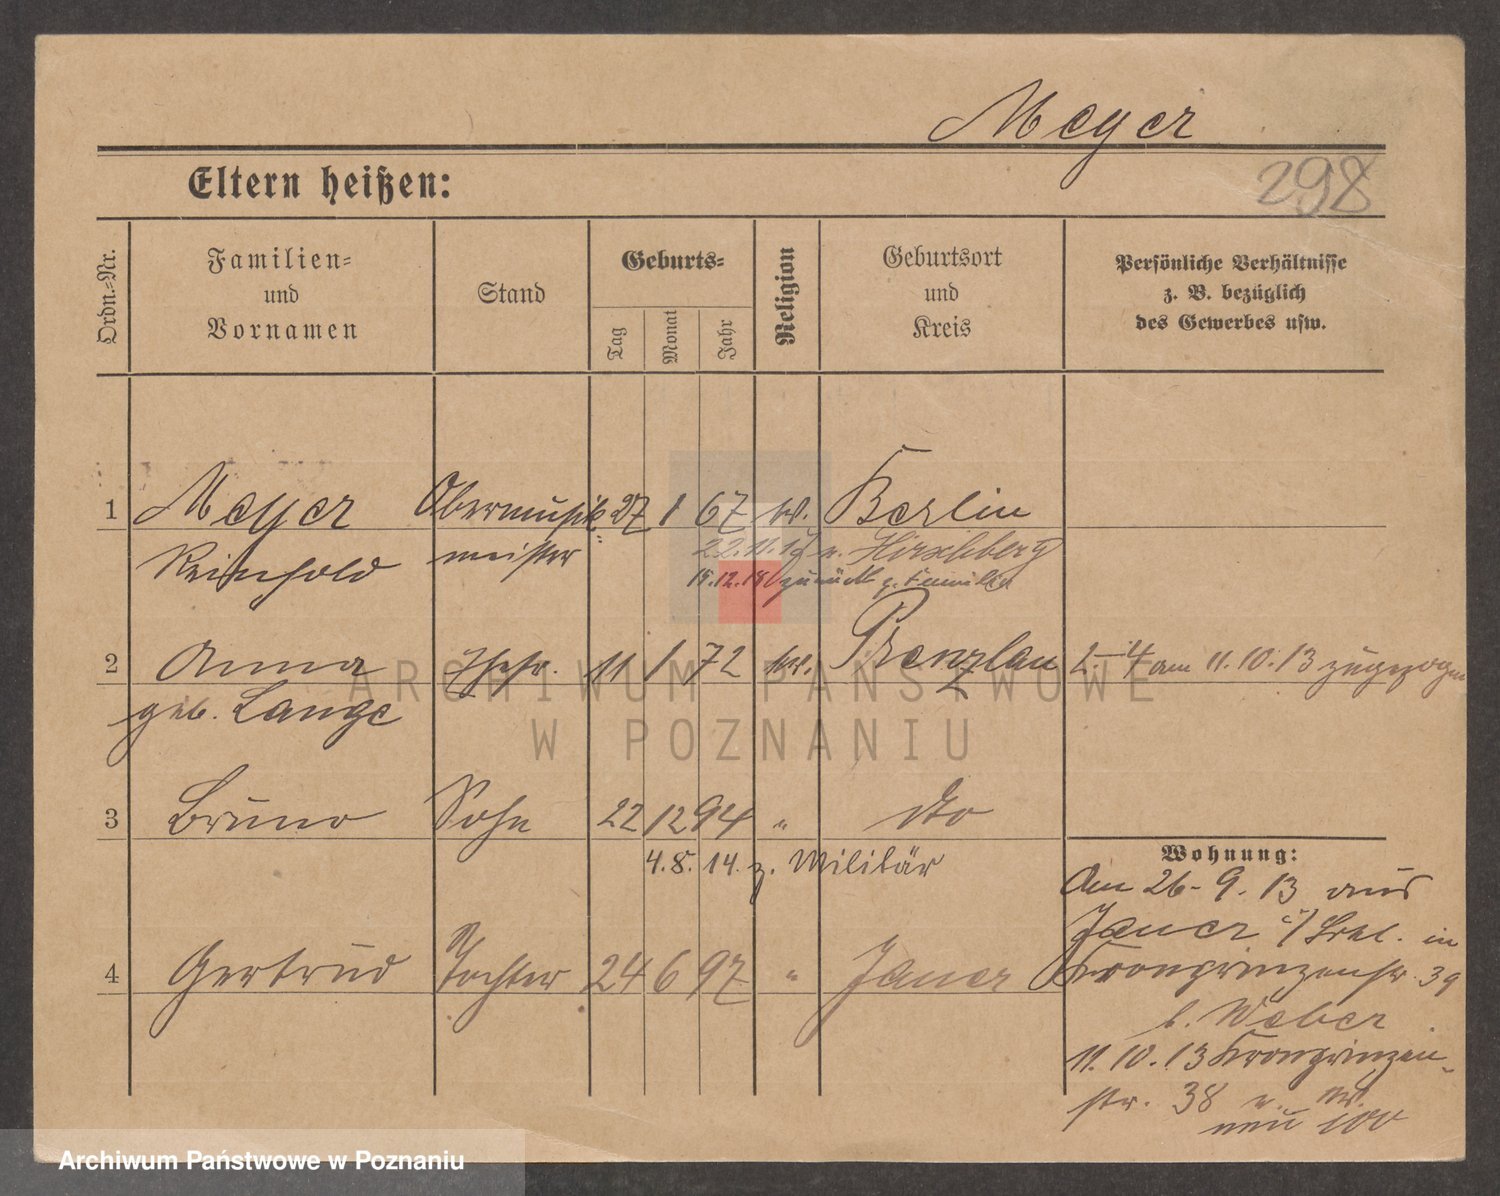 Meyer
298
Eltern heißen:
Ordn.-Nr.
Familien-
und
Vornamen
Stand
Geburts-
Tag
Monat
Jahr
Religion
Geburtsort
und
Kreis
Persönliche Verhältnisse
z. B. bezüglich
des Gewerbes usw.
1 Meyer Obermusik- 27 1 67 Berlin
Reinhold meister 22.11.17 n. Hirschberg
15.12.18 zurück z. Familie
2 Anna Ehefr. 11 1 72 Prenzlau 2-4 am 11.10.13 zugezogen
geb. Lange
3 Bruno Sohn 22 12 94 " dto
4.8.14. z. Militär
Wohnung:
Am 26-9.13 aus
Jauer i/Schl. in
4 Gertrud Tochter 24 6 97 " Jauer Kronprinzenstr. 39
b. Weber
11.10.13 Kronprinzen-
str. 38
neu 100
ARCHIWUM PAŃSTWOWE
W POZNANIU
Archiwum Państwowe w Poznaniu